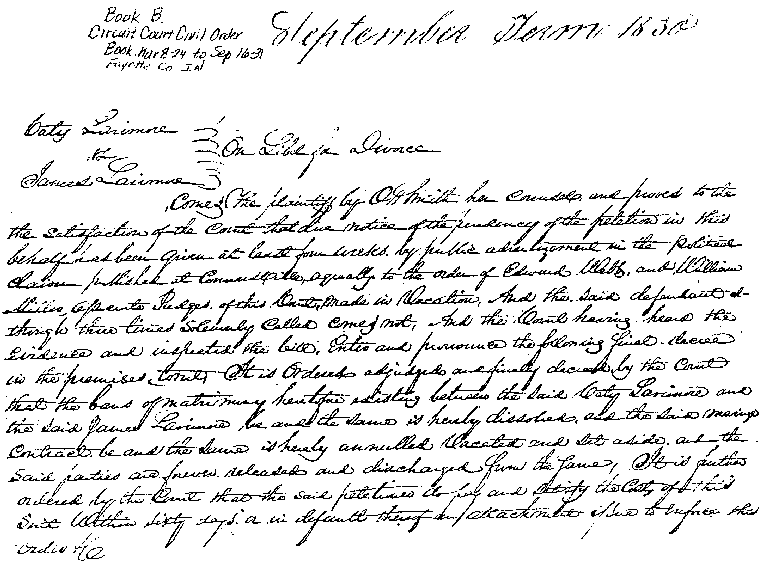 Book B.
Circuit Court Civil Order
Book. Mar 8-24 to Sep 16-31
Fayette Co IN
September Term 1830
Caty Larimore
vs
James Larimore
On Libel for Divorce
Comes The plaintiff by O H Smith her counsels and proves to the
the satisfaction of the Court that due notice of the pendency of the petition in this
behalf has been given at least four weeks by public advertisement in the Political
published at Connersville, agreeably to the order of Edward Webb, and William
Miller, Judges of this Court, made in Vacation, And the said defendant al-
though three times Solemnly Called comes not, And the Court having heard the
Evidence and inspected the bill, Enter and pronounce the following final decree
in the premises, It is Ordered adjudged and finally decreed by the Court
that the bans of matrimony heretofore existing between the said Caty Larimore and
the said James Larimore be and the same is hereby dissolved, and the said marriage
Contract be and the same is hereby annulled Vacated and Set aside, and the
Said parties are forever released and discharged from the Same, It is further
ordered by the Court that the said petitioner do pay and satisfy the Costs of this
Suit Within sixty days or in default thereof an attachment issue to enforce this
order &c